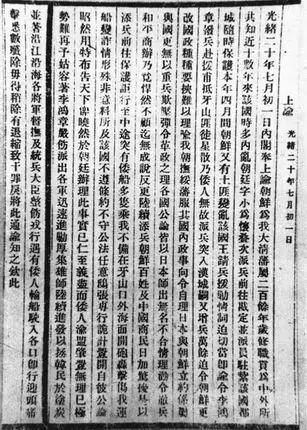 上諭 光緒二十年七月初一日
光緒二十年七月初一日內閣奉上諭朝鮮爲我大清藩屬二百餘年歲修職貢爲中外所
共知近十數年來該國時多內亂朝廷字小爲懷疊次派兵前往戡定並派員駐紮該國都
城隨時保護本年四月間朝鮮又有土匪變亂該國王請兵援勦情詞迫切當即諭令李鴻
章撥兵赴援甫抵牙山匪徒星散乃倭人無故派兵突入漢城嗣又增兵萬餘迫令朝鮮更
改國政種種要挾難以理喻我朝撫綏藩服其國內政事向令自理日本與朝鮮立約係屬
與國更無以重兵欺壓強令革政之理各國公論皆以日本師出無名不合情理勸令撤兵
和平商辦乃竟悍然不顧迄無成說反更陸續添兵朝鮮百姓及中國商民日加驚擾是以
添兵前往保護詎行至中途突有倭船多隻乘我不備在牙山口外海面開砲轟擊傷我運
船變詐情形殊非意料所及該國不遵條約不守公法任意鴟張專行詭計釁開自彼公論
昭然用特布告天下俾曉然於朝廷辦理此事實已仁至義盡而倭人渝盟肇釁無理已極
勢難再予姑容著李鴻章嚴飭派出各軍迅速進勦厚集雄師陸續進發以拯韓民於塗炭
並著沿江沿海各將軍督撫及統兵大臣整飭戎行遇有倭人輪船駛入各口即行迎頭痛
擊悉數殲除毋得稍有退縮致干罪戾將此通諭知之欽此